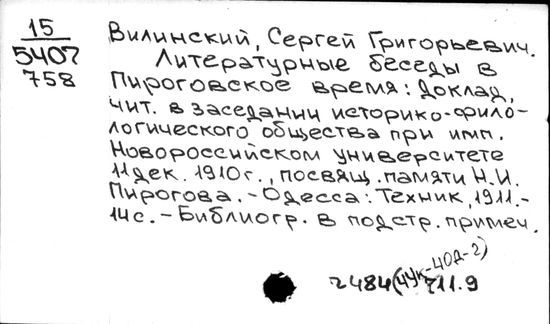 15
5407
758
Вилинский, Сергей Григорьевич.
Литературные беседы в
Пироговское время: доклад,
чит. в заседании историко-фило-
логического общества при имп.
Новороссийском университете
11 дек. 1910г., посвящ. памяти Н.И.
Пирогова. - Одесса: Техник, 1911.-
14с. - Библиогр. в подстр. примеч.
2484(4УК-40Д-2)
711.9